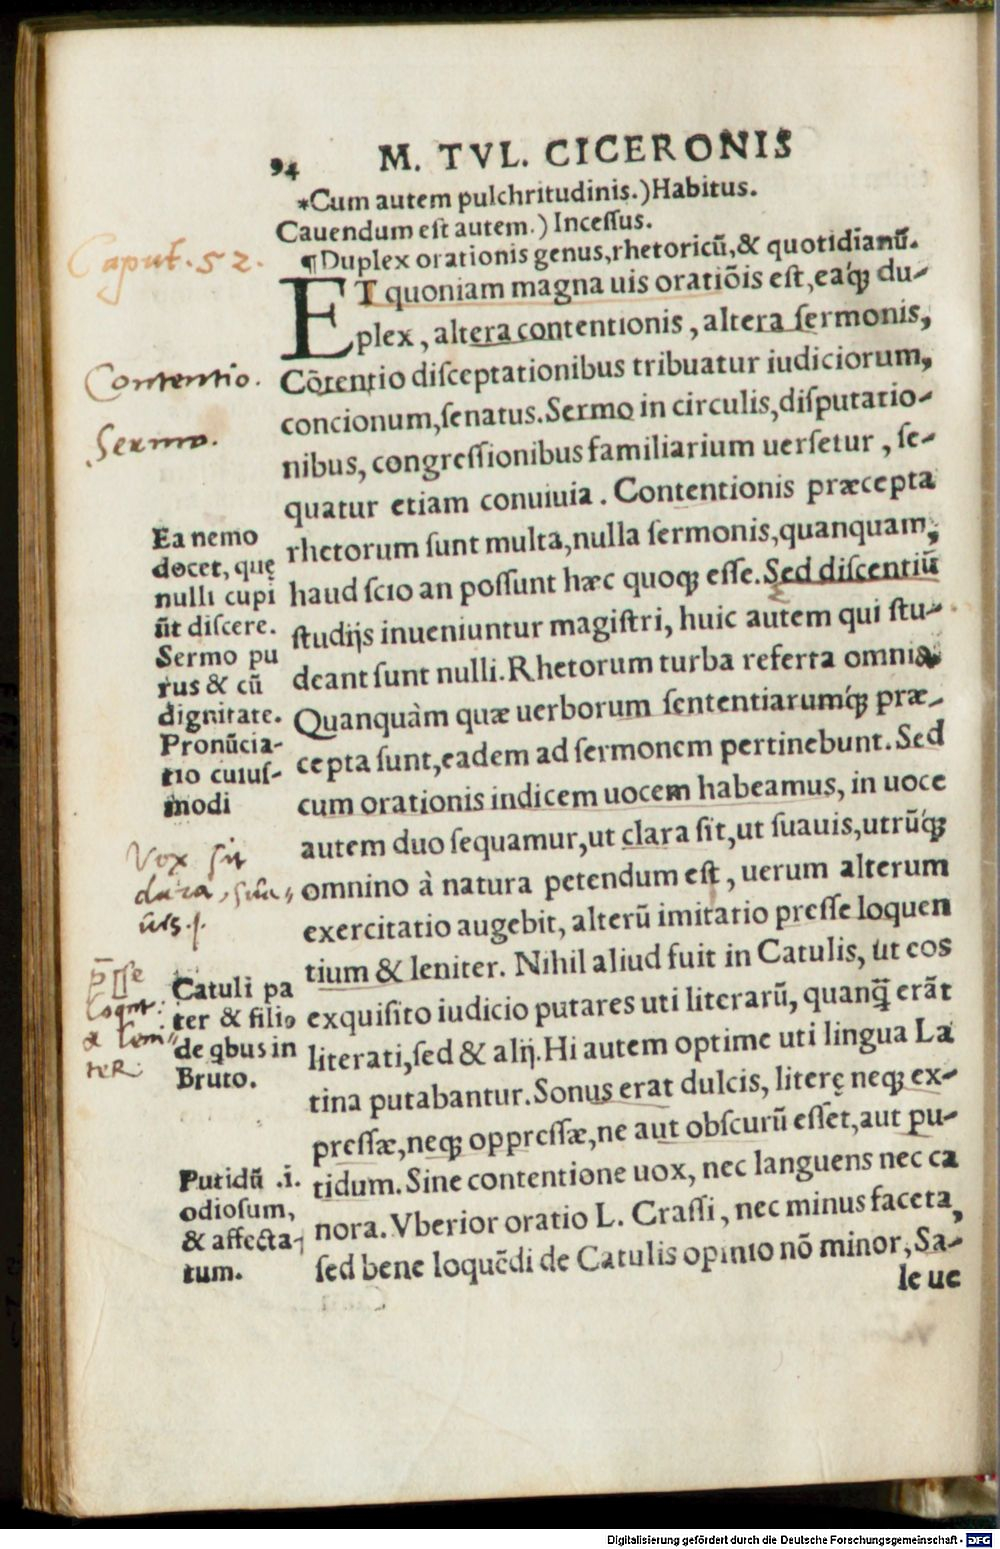 94 M. TVL. CICERONIS
*Cum autem pulchritudinis.) Habitus.
Cauendum eſt autem.) Inceſſus.
¶Duplex orationis genus, rhetoricū, & quotidianū.
Caput. 52.
ET quoniam magna uis oratiōis eſt, eaq́ꝫ du-
plex, altera contentionis, altera ſermonis,
Contentio.
Cōtentio diſceptationibus tribuatur iudiciorum,
concionum, ſenatus. Sermo in circulis, diſputatio-
Sermo.
nibus, congreſſionibus familiarium uerſetur, ſe-
quatur etiam conuiuia. Contentionis præcepta
rhetorum ſunt multa, nulla ſermonis, quanquam,
haud ſcio an poſſunt hæc quoqꝫ eſſe. Sed diſcentiū
ſtudijs inueniuntur magiſtri, huic autem qui ſtu-
deant ſunt nulli. Rhetorum turba referta omnia.
Quanquàm quæ uerborum ſententiarumq́ꝫ præ-
cepta ſunt, eadem ad ſermonem pertinebunt. Sed
cum orationis indicem uocem habeamus, in uoce
autem duo ſequamur, ut clara ſit, ut ſuauis, utrūq́ꝫ
omnino à natura petendum eſt, uerum alterum
exercitatio augebit, alterū imitatio preſſe loquen
tium & leniter. Nihil aliud fuit in Catulis, ut eos
exquiſito iudicio putares uti literarū, quanq̄ꝫ erāt
literati, ſed & alij. Hi autem optime uti lingua La
tina putabantur. Sonus erat dulcis, literę neqꝫ ex-
preſſæ, neqꝫ oppreſſæ, ne aut obſcurū eſſet, aut pu-
tidum. Sine contentione uox, nec languens nec ca
nora. Vberior oratio L. Craſſi, nec minus faceta,
ſed bene loquēdi de Catulis opinio nō minor, Sa-
le ue
Ea nemo
docet, quę
nulli cupi
ūt diſcere.
Sermo pu
rus & cū
dignitate.
Pronūcia-
tio cuiuſ-
modi
Vox ſit
clara, ſua
uis.
p̄ſſe
loqunt.
& leni
teR
Catuli pa
ter & filio
de qbus in
Bruto.
Putidū .i.
odioſum,
& affecta-
tum.
Digitalisierung gefördert durch die Deutsche Forschungsgemeinschaft - DFG